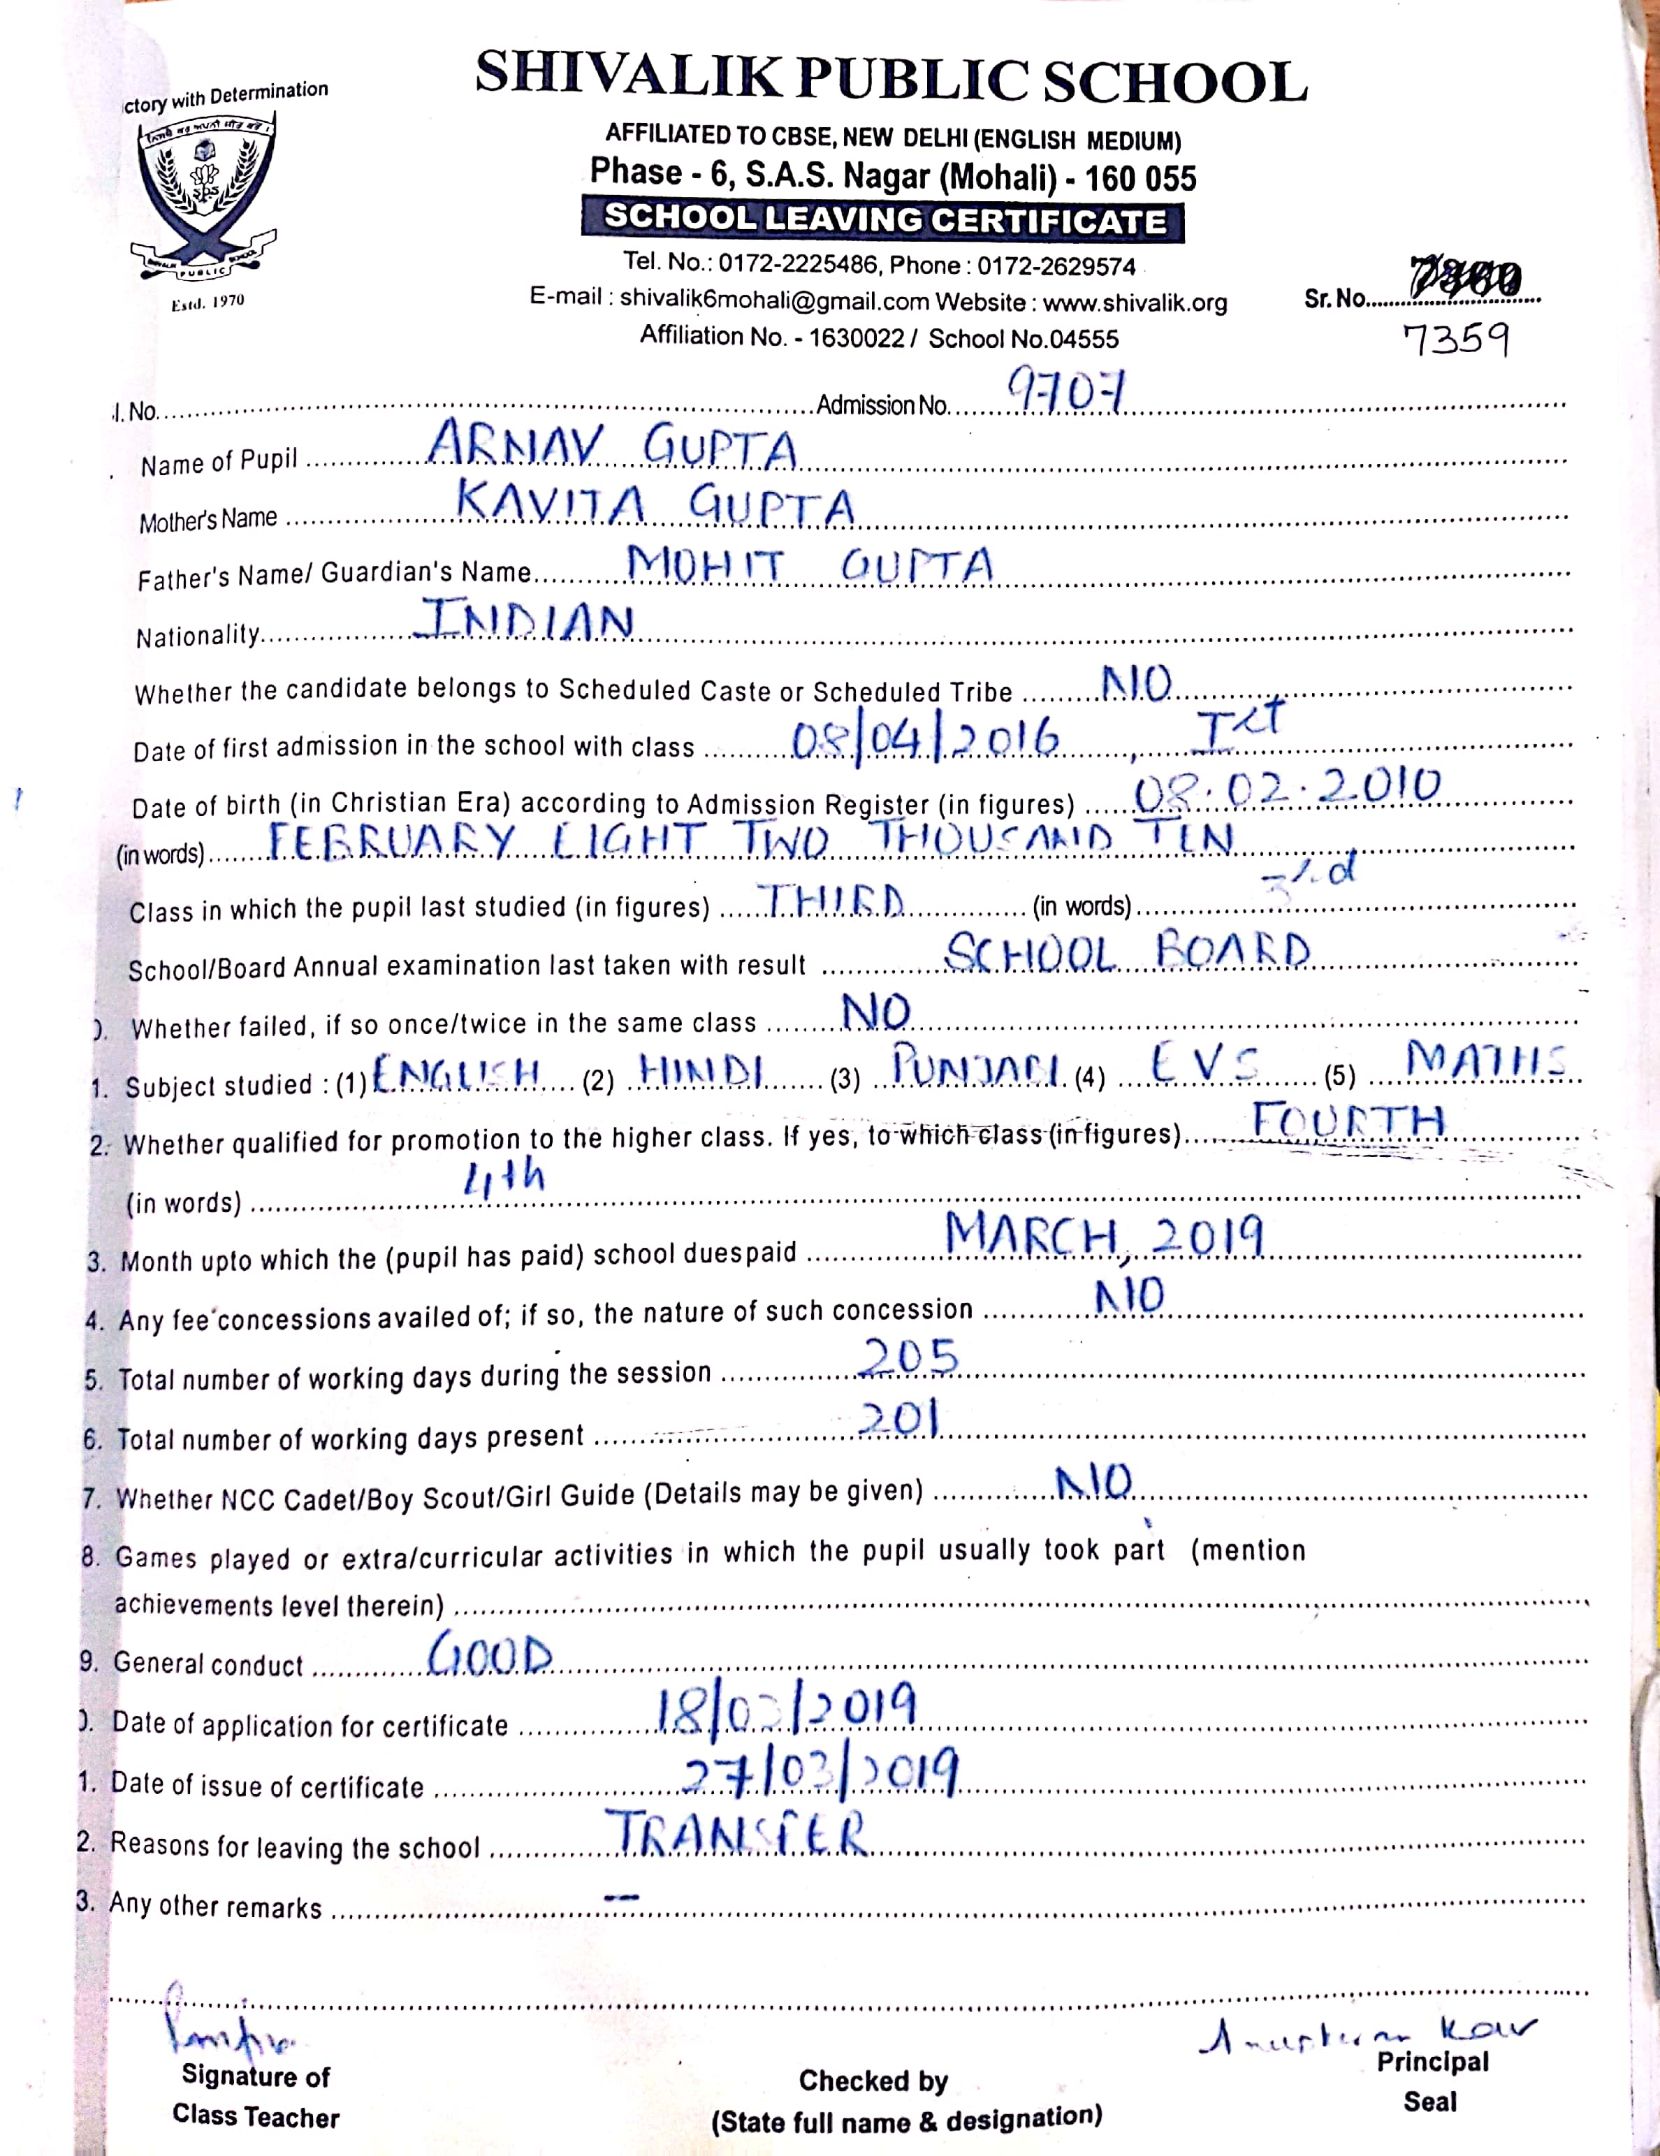 ctory with Determination
SHIVALIK PUBLIC SCHOOL
AFFILIATED TO CBSE, NEW DELHI (ENGLISH MEDIUM)
Phase - 6, S.A.S. Nagar (Mohali) - 160 055
SCHOOL LEAVING CERTIFICATE
Tel. No.: 0172-2225486, Phone : 0172-2629574
E-mail : shivalik6mohali@gmail.com Website : www.shivalik.org
Affiliation No. - 1630022 / School No.04555
SPS
PUBLIC
Estd. 1970
Sr. No.
7359
I. No. Admission No. 9707
Name of Pupil ARNAV GUPTA
Mother's Name KAVITA GUPTA
Father's Name/ Guardian's Name MOHIT GUPTA
Nationality INDIAN
Whether the candidate belongs to Scheduled Caste or Scheduled Tribe NO
Date of first admission in the school with class 08/04/2016, Ist
Date of birth (in Christian Era) according to Admission Register (in figures) 08.02.2010
(in words) FEBRUARY EIGHT TWO THOUSAND TEN
Class in which the pupil last studied (in figures) THIRD (in words) 3rd
School/Board Annual examination last taken with result SCHOOL BOARD
). Whether failed, if so once/twice in the same class NO
1. Subject studied : (1) ENGLISH (2) HINDI (3) PUNJABI (4) EVS (5) MATHS
2. Whether qualified for promotion to the higher class. If yes, to which class (in figures) FOURTH
(in words) 4th
3. Month upto which the (pupil has paid) school duespaid MARCH, 2019
4. Any fee concessions availed of; if so, the nature of such concession NO
5. Total number of working days during the session 205
6. Total number of working days present 201
7. Whether NCC Cadet/Boy Scout/Girl Guide (Details may be given) NO
8. Games played or extra/curricular activities in which the pupil usually took part (mention
achievements level therein)
9. General conduct GOOD
). Date of application for certificate 18/03/2019
1. Date of issue of certificate 27/03/2019
2. Reasons for leaving the school TRANSFER
3. Any other remarks --
Signature of
Class Teacher
Checked by
(State full name & designation)
Principal
Seal